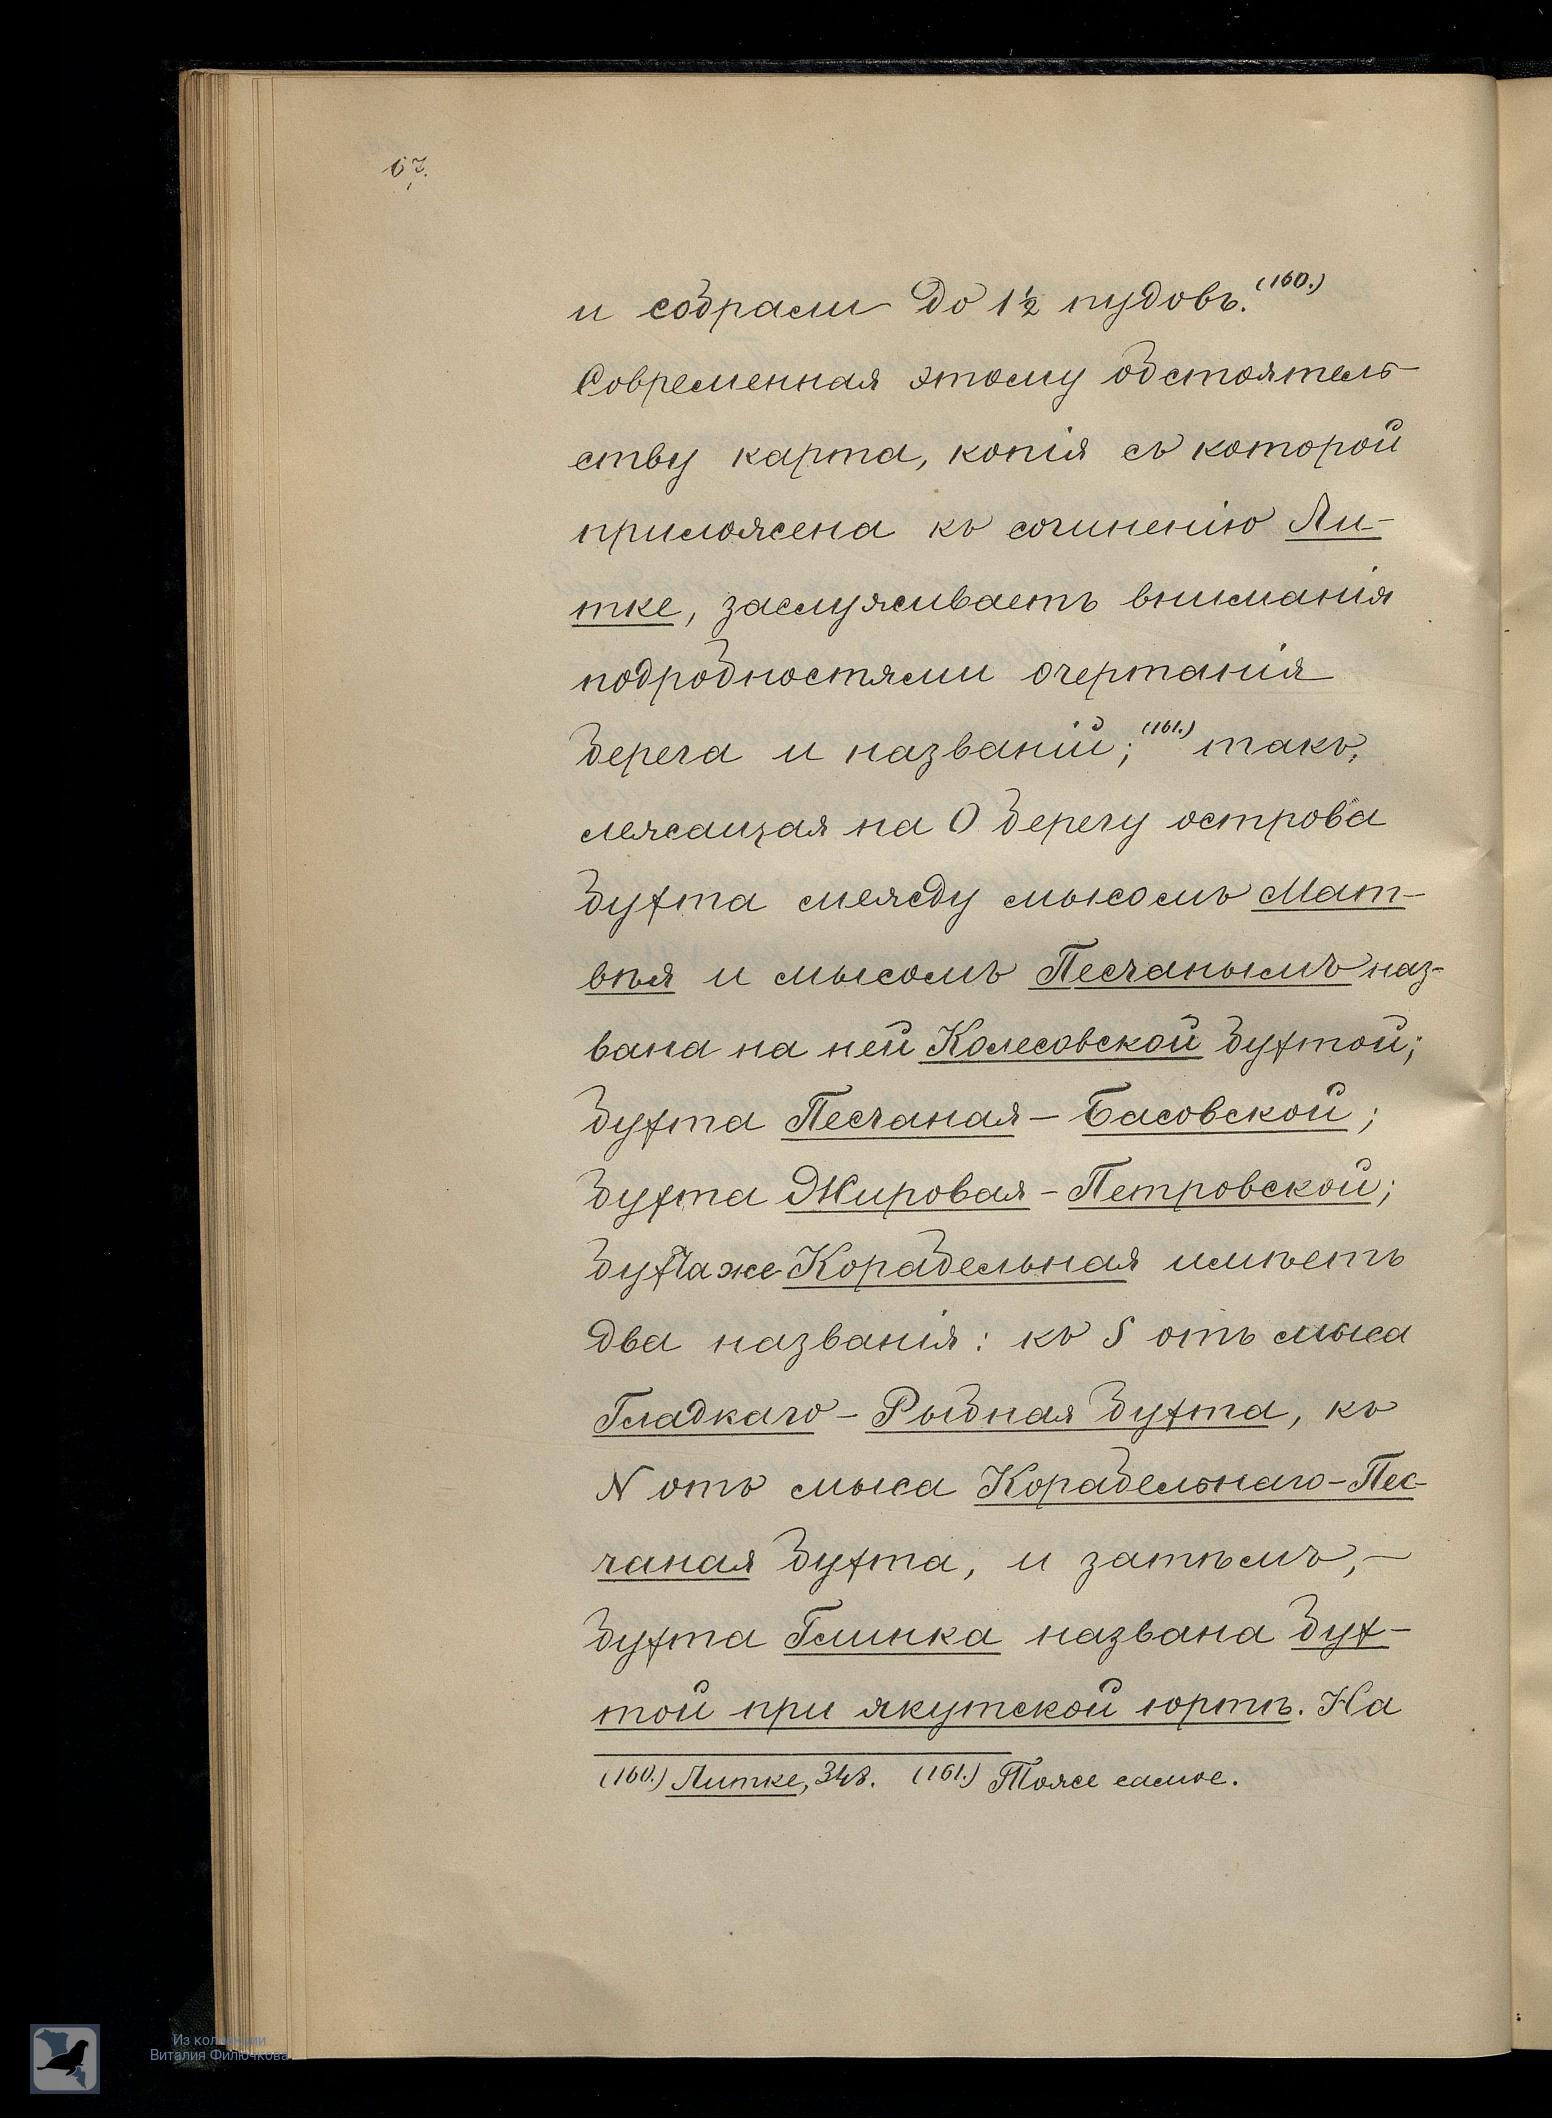 67.
и собрали до 1½ пудовъ.(160.)
Современная этому обстоятель-
ству карта, копія съ которой
приложена къ сочиненію Ли-
тке, заслуживаетъ вниманія
подробностями очертанія
берега и названій;(161.) такъ,
лежащая на О берегу острова
бухта между мысомъ Мат-
вѣя и мысомъ Песчанымъ наз-
вана на ней Колесовской бухтой;
бухта Песчаная – Басовской;
бухта Жировая – Петровской;
бухта же Корабельная имѣетъ
два названія: къ S отъ мыса
Гладкаго – Рыбная бухта, къ
N отъ мыса Корабельнаго – Пес-
чаная бухта, и затѣмъ, –
бухта Глинка названа бух-
той при якутской юртѣ. На
(160.) Литке, 348. (161.) Тоже самое.
Из коллекции
Виталия Филючкова